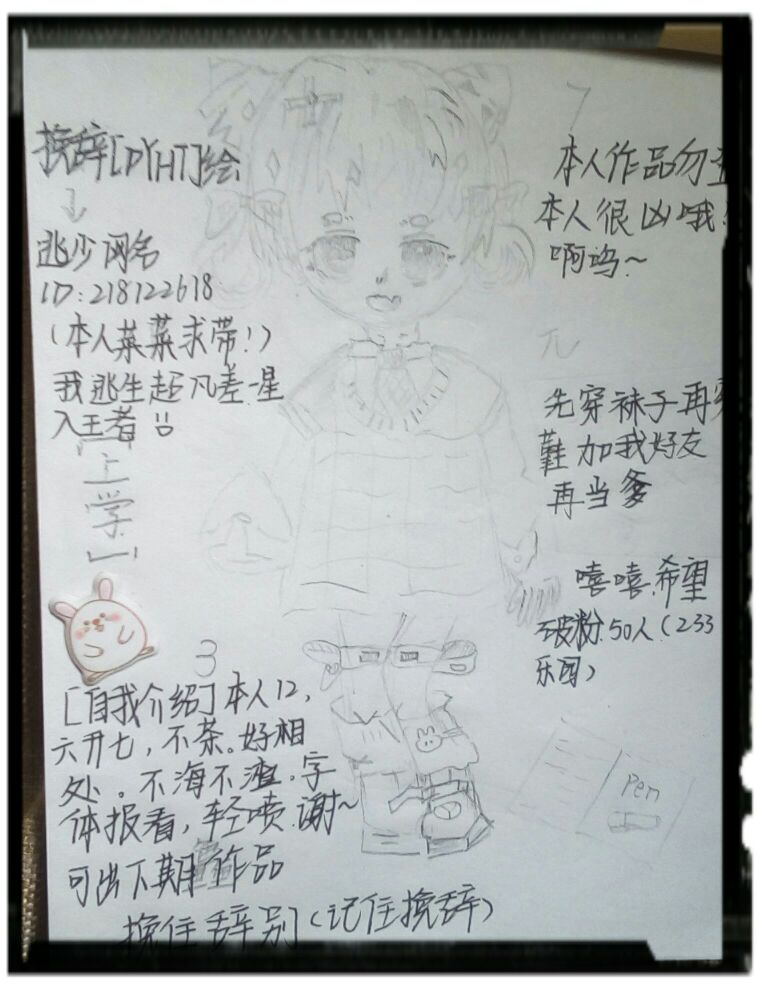 挽辞[DYHT]绘
逃少网名
ID:218122618
(本人菜菜求带!)
我逃生起凡差一星
入王者
「上学」
7
本人作品勿
本人很凶哦!
啊呜~
先穿袜子再
鞋 加我好友
再当爹
嘻嘻.希望
破粉.50人(233
乐园)
Pen
3
[自我介绍]本人12,
六升七,不茶。好相
处。不海不渣.字
体报看,轻喷.谢~
可出下期作品
挽住辞别(记住挽辞)